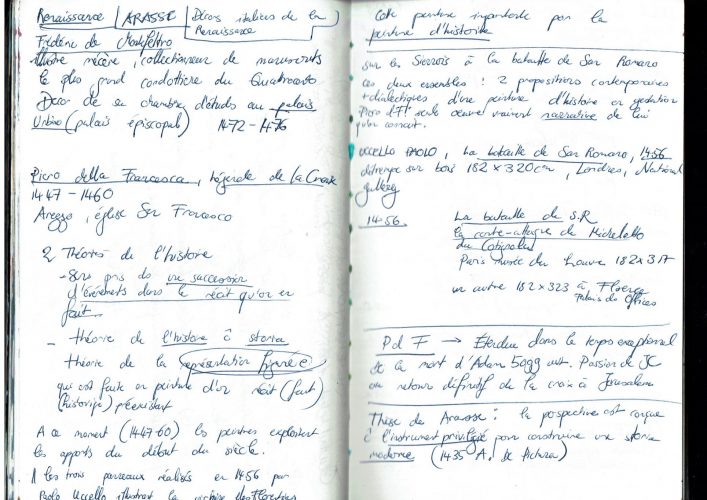 Renaissance / ARASSE / Décors italiens de la Renaissance
Frédéric de Montefeltro
illustre mécène, collectionneur de manuscrits
le plus grand condottiere du Quattrocento
Décor de sa chambre d'études au palais
Urbino (palais épiscopal) 1472-1476
Piero della Francesca, légende de la Croix
1447-1460
Arezzo, église San Francesco
2 Théories de l'histoire
- sens pris de une succession
d'événements dans le récit qu'on en
fait
- théorie de l'histoire à storia
théorie de la représentation figurée
qui est faite en peinture d'un récit (fait)
(historique) préexistant
A ce moment (1447-60) les peintres exploitent
les apports du début du siècle.
les trois panneaux réalisés en 1456 par
Paolo Uccello illustrant la victoire des Florentins
Cote peinture importante por la
peinture d'histoire
sur les Siennois à la bataille de San Romano
ces deux ensembles : 2 propositions contemporaines
+ dialectiques d'une peinture d'histoire en gestation
Piero d F seule oeuvre vraiment narrative de lui
qu'on connait.
UCCELLO PAOLO, La bataille de San Romano, 1456
détrempe sur bois 182 x 320 cm, Londres, National
gallery
1456. La bataille de S.R
la contre-attaque de Micheletto
da Cotignola
Paris musée du Louvre 182 x 317
un autre 182 x 323 à Florence
Palais des Offices
P d F → Etendue dans le temps exceptionnel
de la mort d'Adam 5099 ans. Passion de JC
au retour définitif de la croix à Jérusalem
Thèse de Arasse : la perspective est conçue
à l'instrument privilégié pour construire une storia
moderne (1435 A. de pictura)